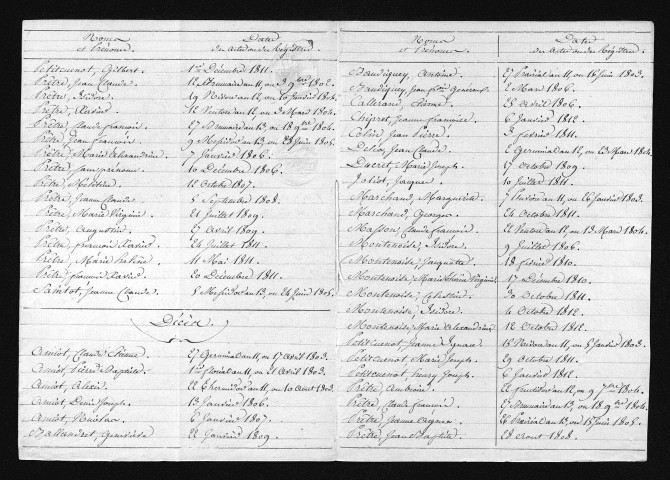 Noms et Prénoms. Dates des actes ou des Registres.
Petitcuenot, Gilbert. 1er Décembre 1811.
Prêtre, Jean Claude. 12 Brumaire an 11, ou 3 9bre 1802.
Prêtre, Isidore. 19 Nivôse an 12, ou 10 Janvier 1804.
Prêtre, Xavier. 12 Ventôse an 12, ou 3 Mars 1804.
Prêtre, Claude François. 27 Brumaire an 13, ou 18 9bre 1804.
Prêtre, Jean François. 9 Messidor an 13, ou 28 Juin 1805.
Prêtre, Marie Alexandrine. 7 Janvier 1806.
Prêtre, sans prénoms. 10 Décembre 1806.
Prêtre, Mélitine. 12 Octobre 1807.
Prêtre, Jeanne Claude. 5 Septembre 1808.
Prêtre, Marie Virginie. 21 Juillet 1809.
Prêtre, Augustin. 27 Avril 1809.
Prêtre, François Xavier. 24 Juillet 1811.
Prêtre, Marie 11 Mai 1811.
Prêtre, François Xavier. 20 Décembre 1811.
Saintot, Jeanne Claude. 5 Messidor an 13, ou 24 Juin 1805.
Décès.
Amiot, Claude Etienne. 27 Germinal an 11, ou 17 Avril 1803.
Amiot, Pierre Baptiste. 1er Floréal an 11, ou 21 Avril 1803.
Amiot, Alexis. 22 Thermidor an 11, ou 10 Aout 1803.
Amiot, Denis Joseph. 13 Janvier 1806.
Amiot, Nicolas. 6 Janvier 1807.
Ballandret, Geneviève 22 Janvier 1809.
Noms et Prénoms. Dates des actes ou des Registres.
Baudiquey, Antoine. 27 Prairial an 11, ou 16 Juin 1803.
Baudiquey, Jean 2 Mars 1806.
Callerand, Etienne. 28 Avril 1806.
Chipret, Jeanne Françoise. 6 Janvier 1812.
Colin, Jean Pierre. 3 février 1811.
Delio, Jean Claude. 2 Germinal an 12, ou 23 Mars 1804.
Ducret, Marie Joseph. 7 Octobre 1809.
Joliot, Jacques. 10 Juillet 1811.
Marchand, Marguerite. 7 Pluviôse an 11, ou 26 Janvier 1803.
Marchand, Georges. 24 Octobre 1811.
Masson, Claude François. 22 Ventôse an 12, ou 13 Mars 1804.
Montenoise, Isidore. 9 Juillet 1806.
Montenoise, Jacquette. 18 février 1810.
Montenoise, Marie Virginie. 17 Décembre 1810.
Montenoise, Célestin. 30 Octobre 1811.
Montenoise, Isidore. 4 Octobre 1812.
Montenoise, Marie Alexandrine. 12 Octobre 1812.
Petitcuenot, Jeanne Ignace. 15 Nivôse an 11, ou 5 Janvier 1803.
Petitcuenot, Marie Joseph. 29 Octobre 1811.
Petitcuenot, Henry Joseph. 6 Janvier 1812.
Prêtre, Ambroise. 22 Fructidor an 12, ou 9 7bre 1804.
Prêtre, Claude François. 27 Brumaire an 13, ou 18 9bre 1804.
Prêtre, Jeanne Agnès. 26 Prairial an 13, ou 15 Juin 1805.
Prêtre, Jean Baptiste. 28 Aout 1808.